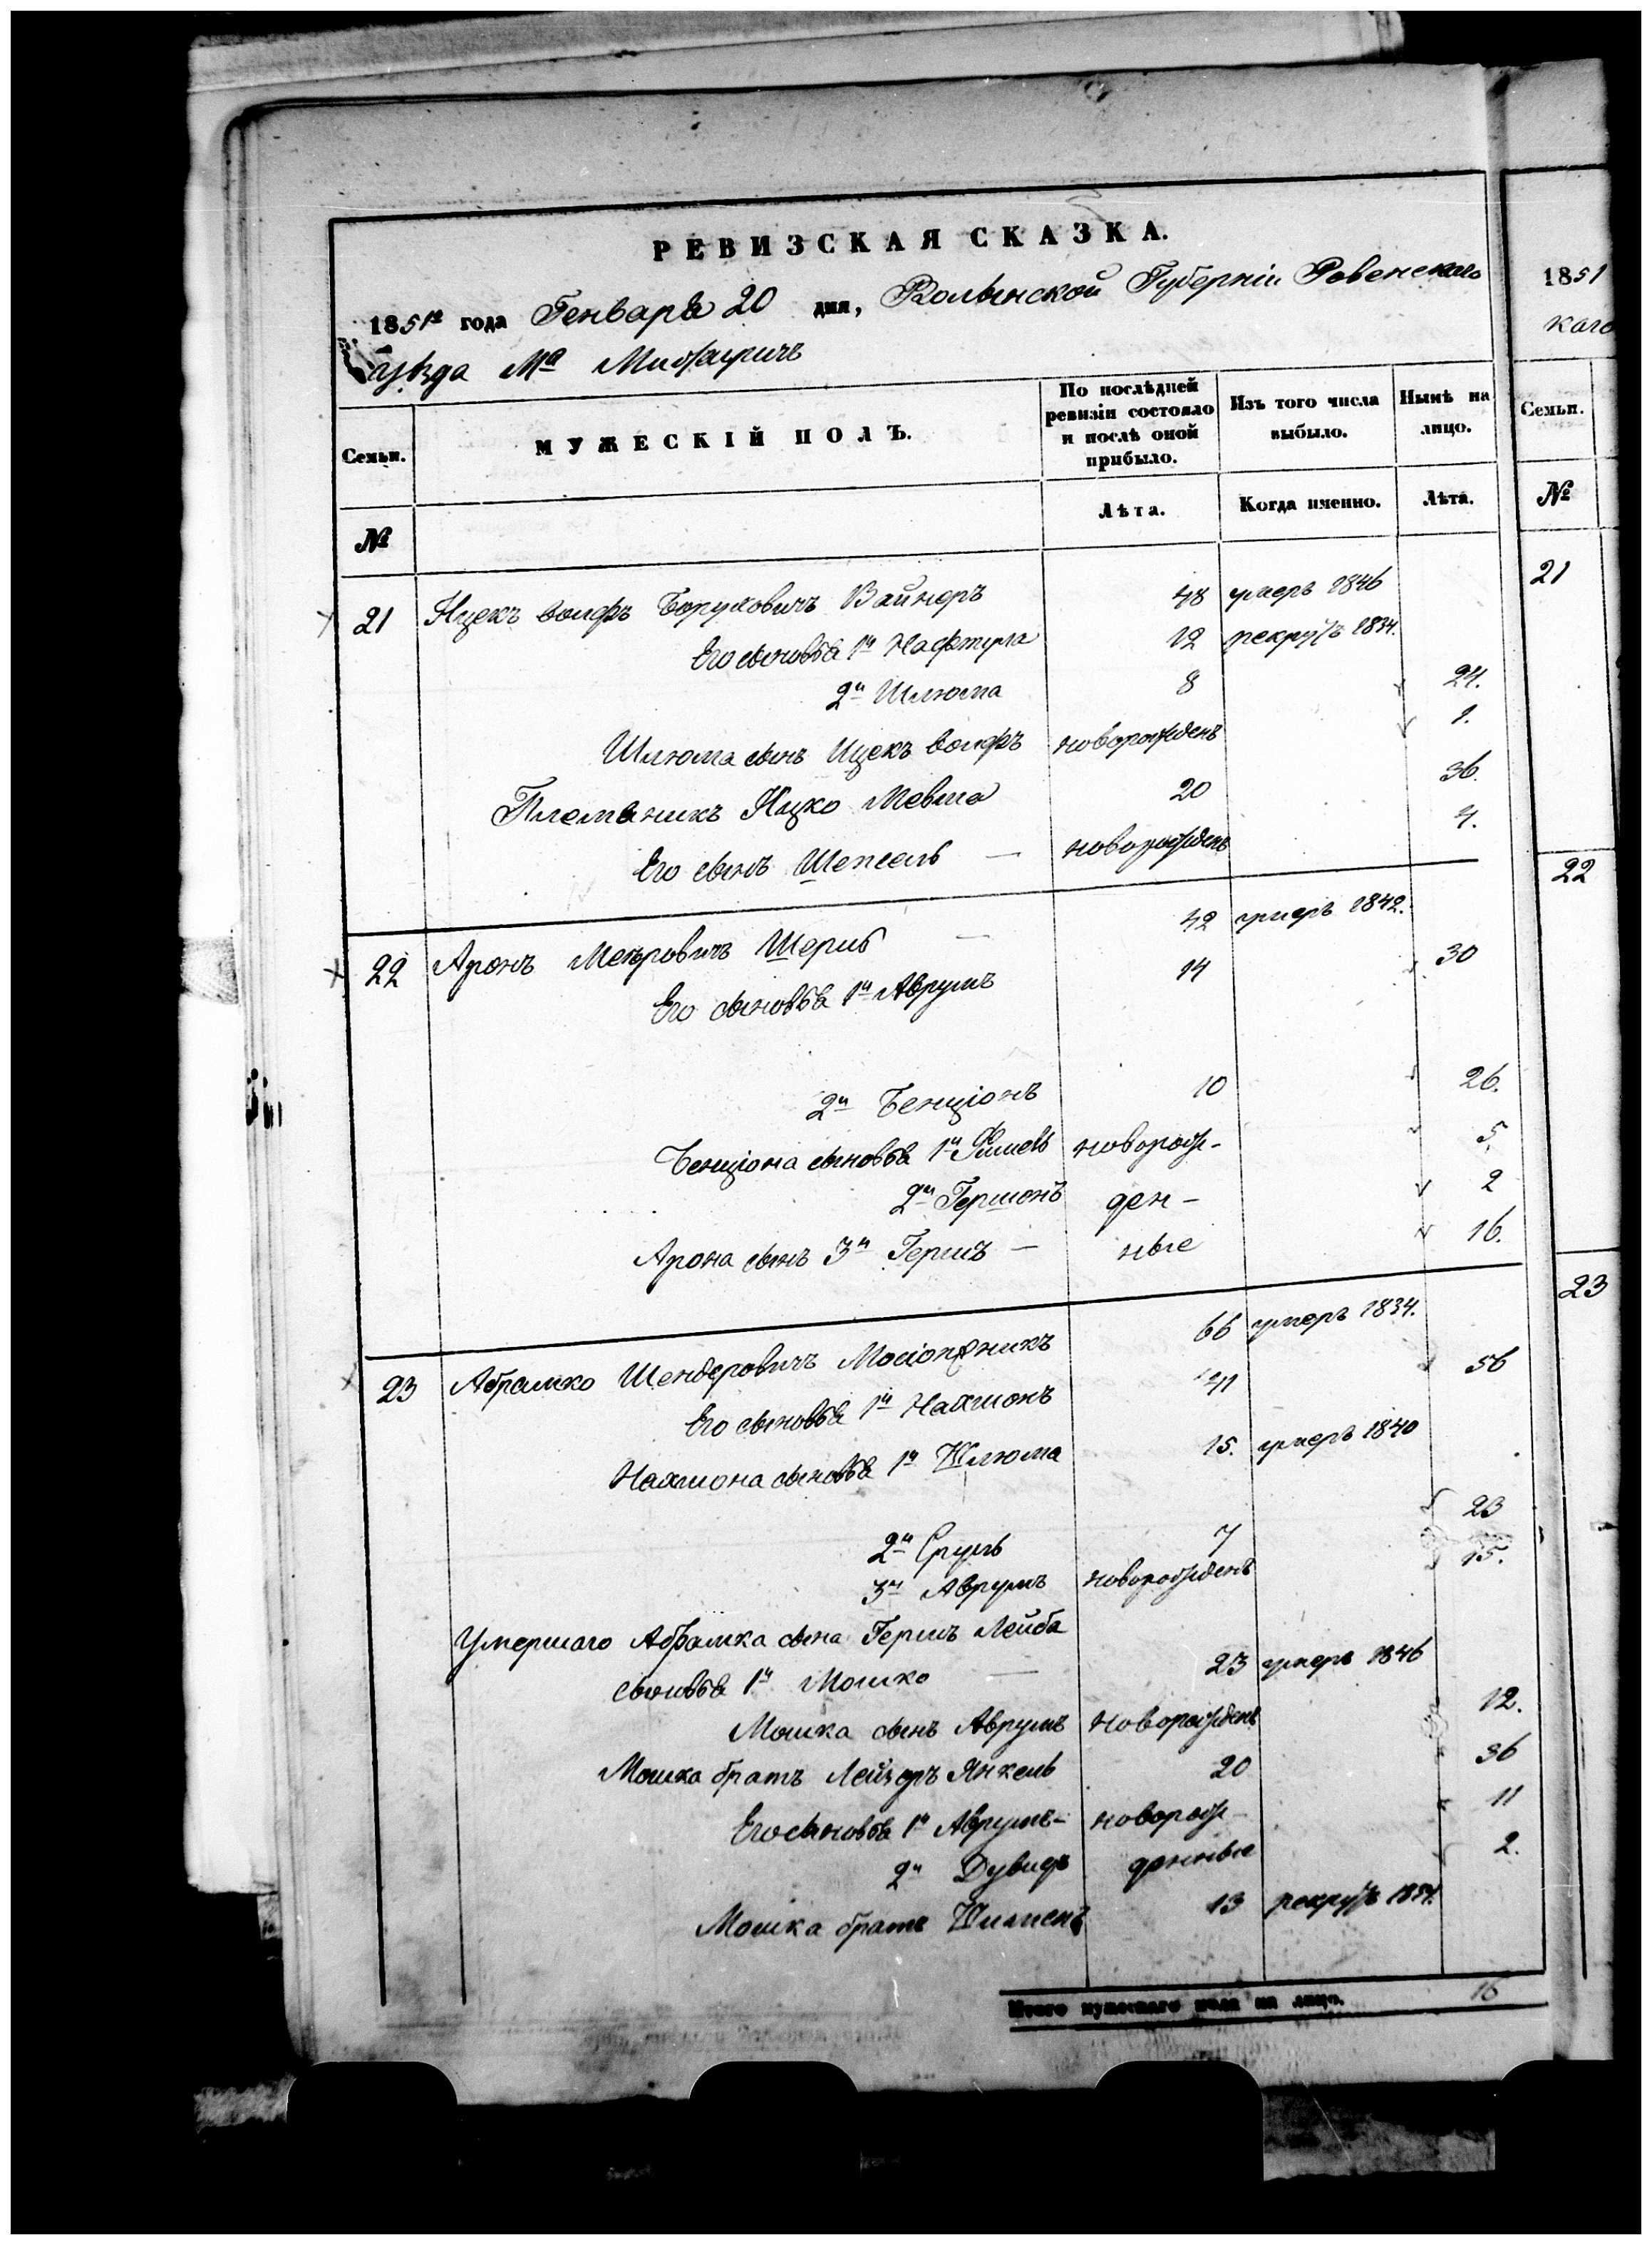 РЕВИЗСКАЯ СКАЗКА.
1851го года Генваря 20 дня, Волынской Губерніи Ровенскаго
уѣзда Ма Межирич
1851
каго
Семьи.
МУЖЕСКІЙ ПОЛЪ.
По послѣдней ревизіи состояло и послѣ оной прибыло.
Изъ того числа выбыло.
Нынѣ на лицо.
Семьи.
№
Лѣта.
Когда именно.
Лѣта.
№
21 Ицекъ Волфъ Боруховичъ Вайнеръ 48 умеръ 1846
21
Его сыновья 1й Нафтула 12 рекрутъ 1834.
2й Шлюма 8 24.
Шлюма сынъ Ицекъ Волфъ новорожденъ 1.
Племяникъ Ицко Мевша 20 36.
Его сынъ Шепсель — новорожденъ 4.
22
22 Аронъ Меировичъ Шериб — 42 умеръ 1842.
Его сыновья 1й Аврумъ 14 30
2й Бенціонъ 10 26.
Бенціона сыновья 1й новорож- 5.
2й Гершонъ ден- 2
Арона сынъ 3й Гершъ — ные 16.
23
23 Абрамко Шендеровичъ 66 умеръ 1834.
Его сыновья 1й Нахманъ 41 56
Нахмона сыновья 1й Шлюма 15. умеръ 1840
2й Сруль 7 23
3й Аврумъ новорожденъ 15.
Умершаго Абрамка сына Гершъ Лейба
сыновья 1й Мошко — 23 умеръ 1846
Мошка сынъ Аврумъ новорожденъ 12.
Мошка братъ Лейзеръ Янкель 20 36
Его сыновья 1й Аврумъ- новорож- 11
2й Дувидъ денные 2.
Мошка братъ Шименъ 13 рекрутъ 1854.
Итого мужескаго пола на лицо. 16